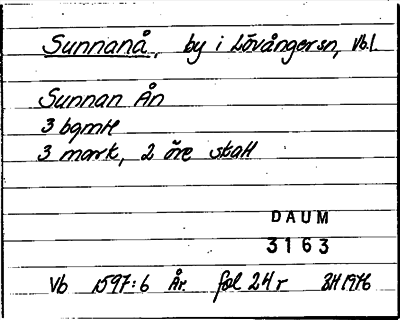 Sunnanå, by i Lövånger sn, Vb.l.
Sunnan Ån
3 bgmtl
3 mark, 2 öre skatt
DAUM
3163
Vb 1597:6 År. fol 24 r 1976